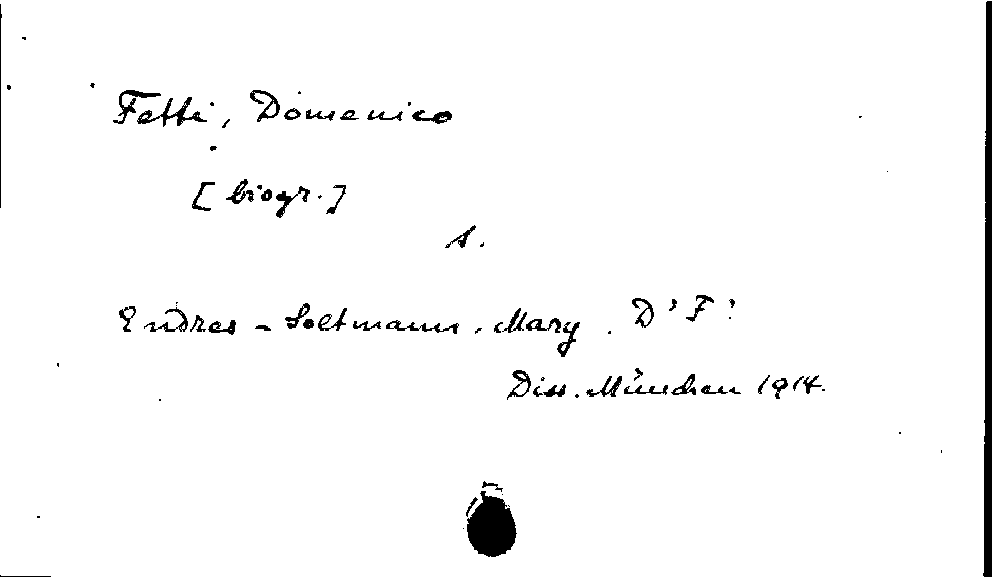 Fetti, Domenico
[biogr.]
s.
Endres-Soltmann, Mary. D' F'
Diss. München 1914.